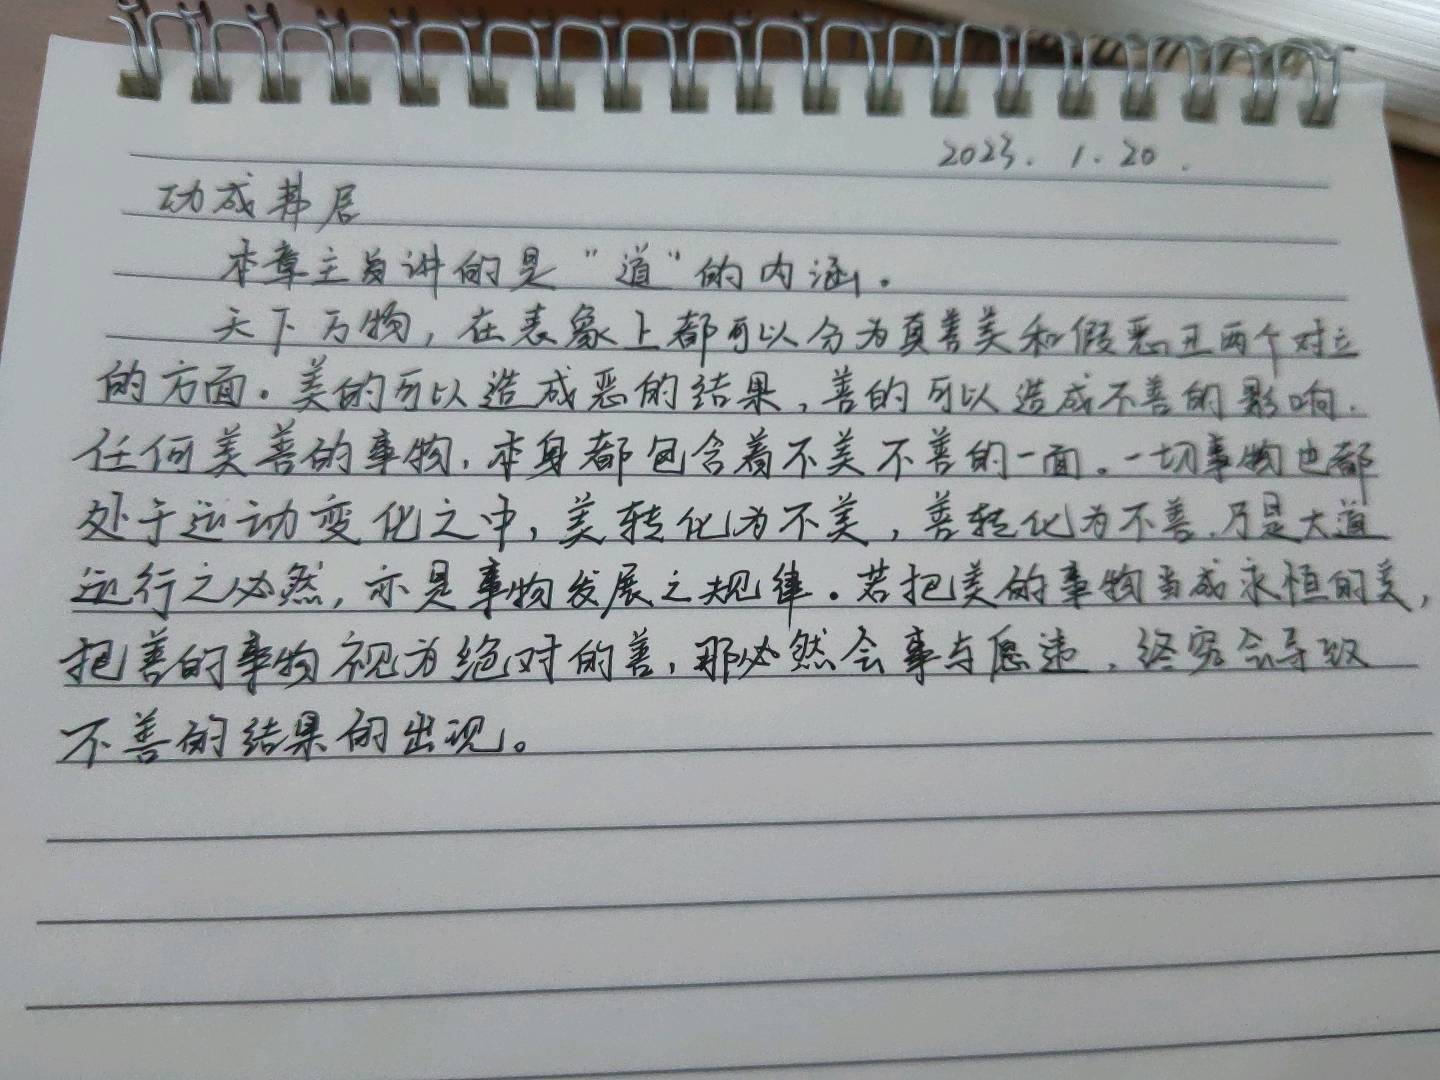 2023.1.20.
功成弗居
本章主旨讲的是“道”的内涵。
天下万物，在表象上都可以分为真善美和假恶丑两个对立
的方面。美的可以造成恶的结果，善的可以造成不善的影响.
任何美善的事物，本身都包含着不美不善的一面。一切事物也都
处于运动变化之中，美转化为不美，善转化为不善，乃是大道
运行之必然，亦是事物发展之规律。若把美的事物当成永恒的美，
把善的事物视为绝对的善，那必然会事与愿违，终究会导致
不善的结果的出现。